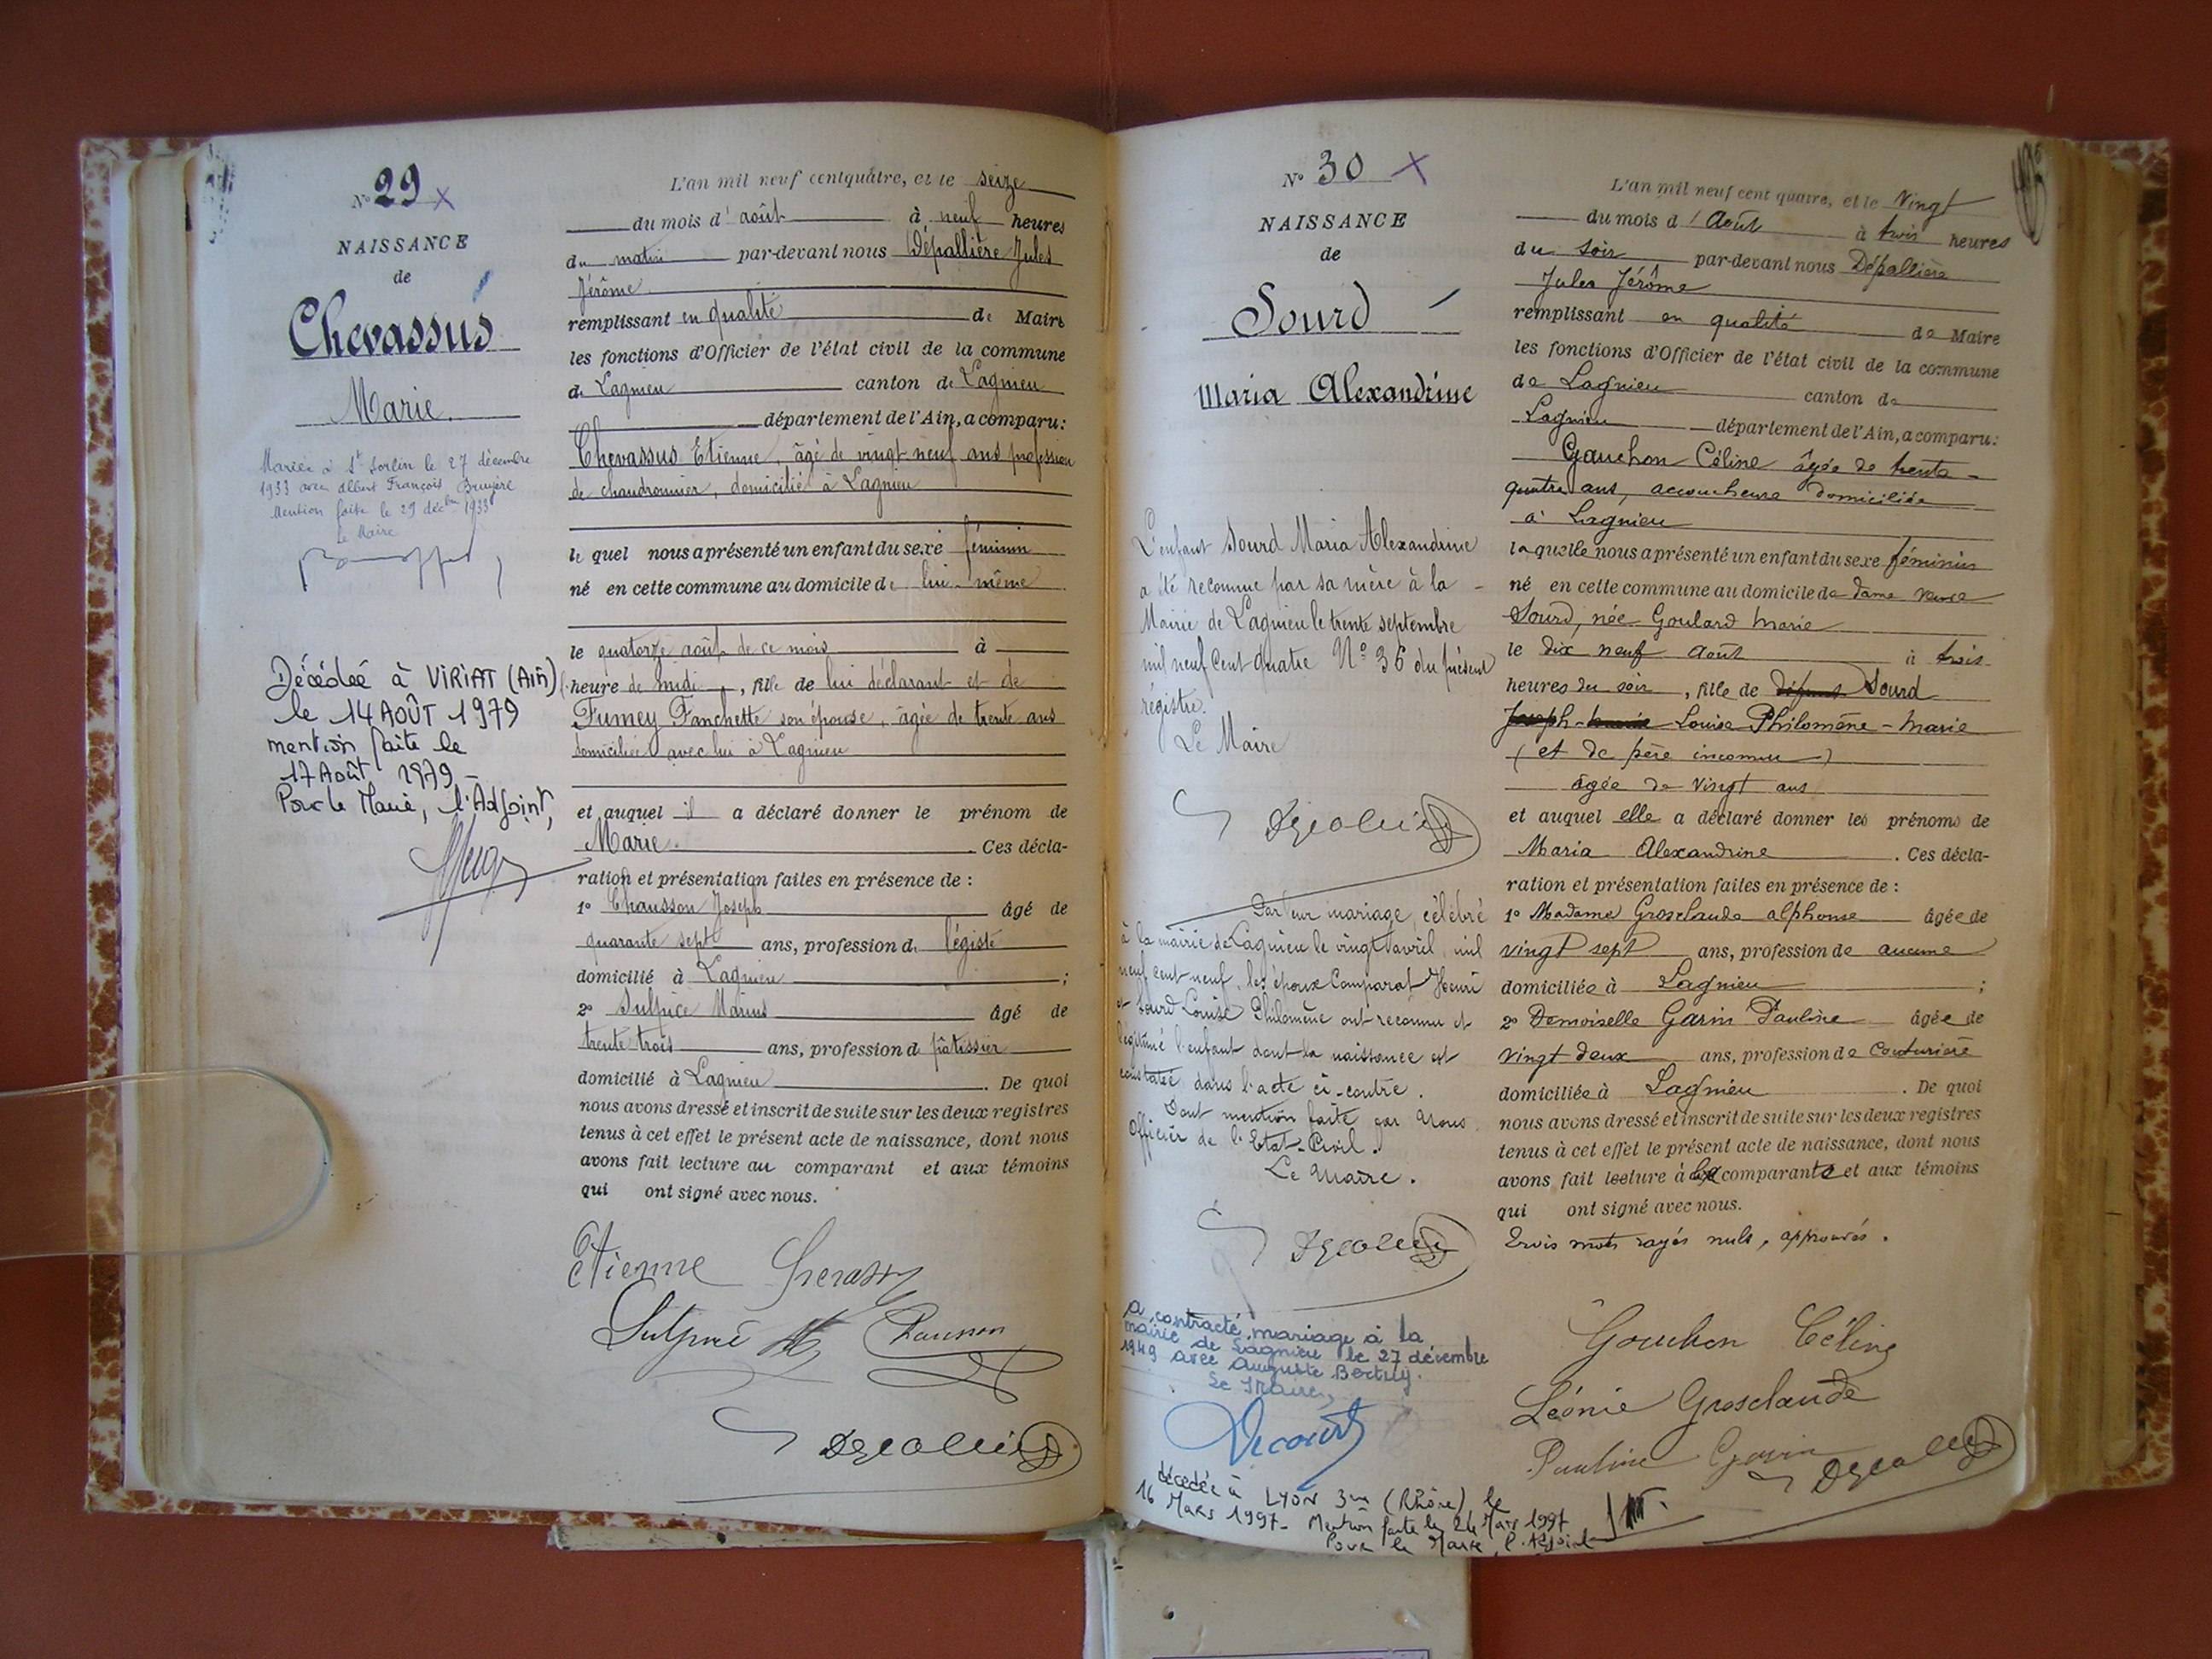 N° 29 X
NAISSANCE
de
Chevassus
Marie.
Mariée à St Sorlin le 27 décembre
1933 avec Albert François Bruyère
Mention faite le 29 décbre 1933
Le Maire
Décédée à VIRIAT (Ain)
le 14 AOÛT 1979
mention faite le
17 Août 1979 -
Pour le Maire, l'Adjoint,
L'an mil neuf cent quatre, et le seize
du mois d' août à neuf heures
du matin par-devant nous Dépallière Jules
Jérôme
remplissant en qualité de Maire
les fonctions d'Officier de l'état civil de la commune
de Lagnieu canton de Lagnieu
département de l'Ain, a comparu:
Chevassus Etienne, âgé de vingt neuf ans profession
de chaudronnier, domicilié à Lagnieu
le quel nous a présenté un enfant du sexe féminin
né en cette commune au domicile de lui-même
le quatorze août de ce mois à
heure de midi, fille de lui déclarant et de
Fumey Fanchette son épouse, âgée de trente ans
domiciliée avec lui à Lagnieu
et auquel il a déclaré donner le prénom de
Marie. Ces décla-
ration et présentation faites en présence de :
1° Chausson Joseph âgé de
quarante sept ans, profession de légiste
domicilié à Lagnieu ;
2° Sulpice Marius âgé de
trente trois ans, profession de pâtissier
domicilié à Lagnieu. De quoi
nous avons dressé et inscrit de suite sur les deux registres
tenus à cet effet le présent acte de naissance, dont nous
avons fait lecture au comparant et aux témoins
qui ont signé avec nous.
Etienne
Sulpice Chausson
N° 30 X
NAISSANCE
de
Sourd
Maria Alexandrine
L'enfant Sourd Maria Alexandrine
a été reconnue par sa mère à la
Mairie de Lagnieu le trente septembre
mil neuf cent quatre N° 36 du présent
régistre.
Le Maire
Par leur mariage, célébré
à la mairie de Lagnieu le vingt avril mil
neuf cent neuf, les époux Comparat Henri
et Sourd Louise Philomène ont reconnu et
légitimé l'enfant dont la naissance est
constatée dans l'acte ci-contre.
Dont mention faite par Nous
Officier de l'Etat-Civil.
Le Maire.
a contracté mariage à la
mairie de Lagnieu le 27 décembre
1949 avec Auguste
Le Maire,
décédée à LYON 3me (Rhône) le
16 Mars 1997 - Mention faite le 24 Mars 1997
Pour le Maire, l'Adjoint
L'an mil neuf cent quatre, et le Vingt
du mois d' Août à trois heures
du soir par-devant nous Dépallière
Jules Jérôme
remplissant en qualité de Maire
les fonctions d'Officier de l'état civil de la commune
de Lagnieu canton de
Lagnieu département de l'Ain, a comparu:
Gauchon Céline âgée de trente-
quatre ans, accoucheuse domiciliée
à Lagnieu
laquelle nous a présenté un enfant du sexe féminin
né en cette commune au domicile de dame veuve
Sourd, née Goulard Marie
le dix neuf août à trois
heures du soir, fille de défunt Sourd
Joseph-Marie Louise Philomène-Marie
(et de père inconnu)
âgée de vingt ans
et auquel elle a déclaré donner les prénoms de
Maria Alexandrine. Ces décla-
ration et présentation faites en présence de :
1° Madame Grosclaude Alphonse âgée de
vingt sept ans, profession de aucune
domiciliée à Lagnieu ;
2° Demoiselle Garin Pauline âgée de
vingt deux ans, profession de Couturière
domiciliée à Lagnieu. De quoi
nous avons dressé et inscrit de suite sur les deux registres
tenus à cet effet le présent acte de naissance, dont nous
avons fait lecture à la comparante et aux témoins
qui ont signé avec nous.
Trois mots rayés nuls, approuvés.
Gauchon Céline
Léonie Grosclaude
Pauline Garin